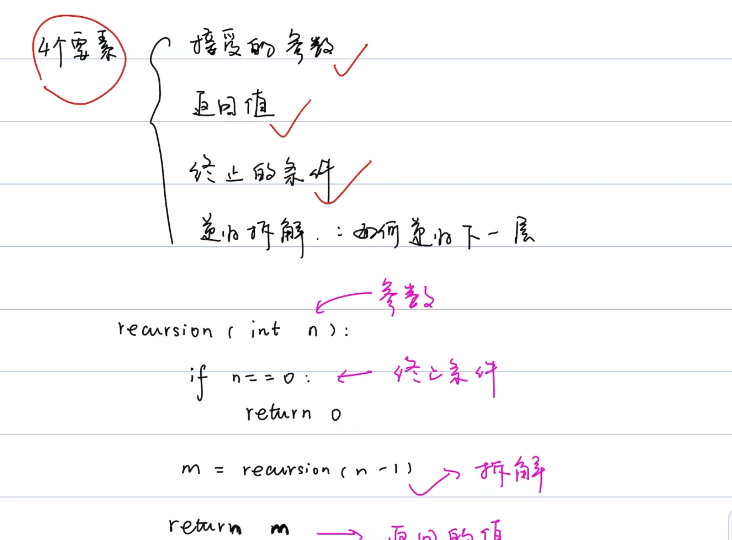 4个要素
接受的参数
返回值
终止的条件
递归拆解：如何递归下一层
参数
recursion ( int n ):
if n == 0 : ← 终止条件
return 0
m = recursion ( n - 1 ) → 拆解
return m → 返回的值